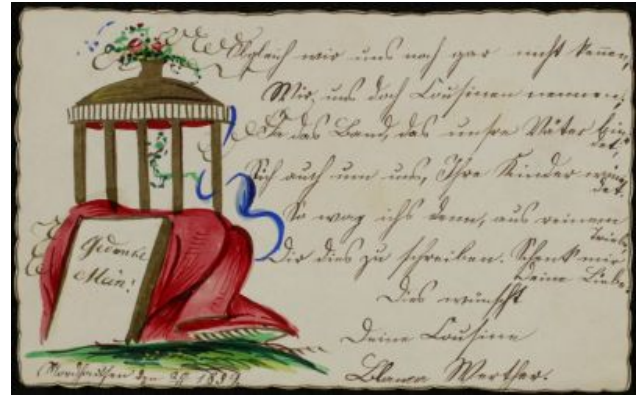 Obgleich wir uns noch gar nicht kennen,
Wir, uns doch Cousinen nennen;
Da das Band, das unsre Väter bin
det,
Sich auch um uns, Ihre Kinder win
det.
So wag ichs denn, aus reinem
Triebe
Dir dies zu schreiben. Schenk mir
Deine Liebe.
Dies wünscht
Deine Cousine
Werther.
Gedenke
Mein!
Nordhausen den